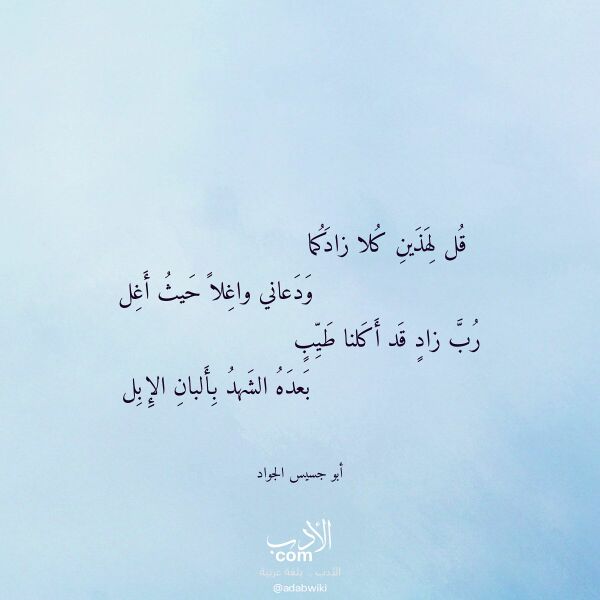 قُل لِهَذَينِ كُلا زادَكُما
وَدَعاني واغِلاً حَيثُ أَغِل
رُبَّ زادٍ قَد أَكَلنا طَيِّبٍ
بَعدَهُ الشَهدُ بِأَلبانِ الإِبِل
أبو جسيس الجواد
الأدب
com
الأدب .. بلغة عربية
@adabwiki